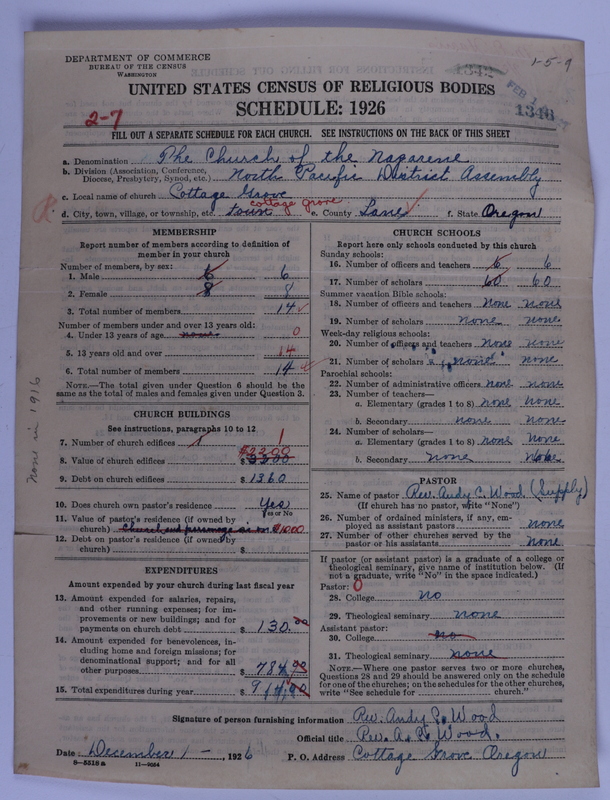 DEPARTMENT OF COMMERCE
BUREAU OF THE CENSUS
WASHINGTON
1-5-9
1342
FEB 1
1346
UNITED STATES CENSUS OF RELIGIOUS BODIES
SCHEDULE: 1926
2-7
FILL OUT A SEPARATE SCHEDULE FOR EACH CHURCH. SEE INSTRUCTIONS ON THE BACK OF THIS SHEET
a. Denomination The Church of the Nazarene
b. Division (Association, Conference, Diocese, Presbytery, Synod, etc.) North Pacific District Assembly
c. Local name of church Cottage Grove
d. City, town, village, or township, etc. town cottage grove e. County Lane f. State Oregon
MEMBERSHIP
Report number of members according to definition of
member in your church
Number of members, by sex:
1. Male 6 6
2. Female 8 8
3. Total number of members 14
Number of members under and over 13 years old:
4. Under 13 years of age none 0
5. 13 years old and over 14
6. Total number of members 14
NOTE.—The total given under Question 6 should be the
same as the total of males and females given under Question 3.
none in 1916
CHURCH BUILDINGS
See instructions, paragraphs 10 to 12
7. Number of church edifices 1 1
8. Value of church edifices $2200
9. Debt on church edifices $1360
10. Does church own pastor's residence Yes
Yes or No
11. Value of pastor's residence (if owned by
church) Church and parsonage as one $1000
12. Debt on pastor's residence (if owned by
church) $
EXPENDITURES
Amount expended by your church during last fiscal year
13. Amount expended for salaries, repairs,
and other running expenses; for im-
provements or new buildings; and for
payments on church debt $ 130.00
14. Amount expended for benevolences, in-
cluding home and foreign missions; for
denominational support; and for all
other purposes $ 784.00
15. Total expenditures during year $ 914.00
CHURCH SCHOOLS
Report here only schools conducted by this church
Sunday schools:
16. Number of officers and teachers 6 6
17. Number of scholars 60 60
Summer vacation Bible schools:
18. Number of officers and teachers none none
19. Number of scholars none none
Week-day religious schools:
20. Number of officers and teachers none none
21. Number of scholars none none
Parochial schools:
22. Number of administrative officers none none
23. Number of teachers—
a. Elementary (grades 1 to 8) none None
b. Secondary none None
24. Number of scholars—
a. Elementary (grades 1 to 8) none None
b. Secondary none None
PASTOR
25. Name of pastor Rev. Andy C. Wood (Supply)
(If church has no pastor, write "None")
26. Number of ordained ministers, if any, em-
ployed as assistant pastors none
27. Number of other churches served by the
pastor or his assistants none
If pastor (or assistant pastor) is a graduate of a college or
theological seminary, give name of institution below. (If
not a graduate, write "No" in the space indicated.)
Pastor: 0
28. College no
29. Theological seminary none
Assistant pastor:
30. College no
31. Theological seminary none
NOTE.—Where one pastor serves two or more churches,
Questions 28 and 29 should be answered only on the schedule
for one of the churches; on the schedules for the other churches,
write "See schedule for church."
Signature of person furnishing information Rev. Andy C. Wood
Official title Rev. A. C. Wood.
Date: December 1 — , 1926 P. O. Address Cottage Grove Oregon
8—5518a 11—9024